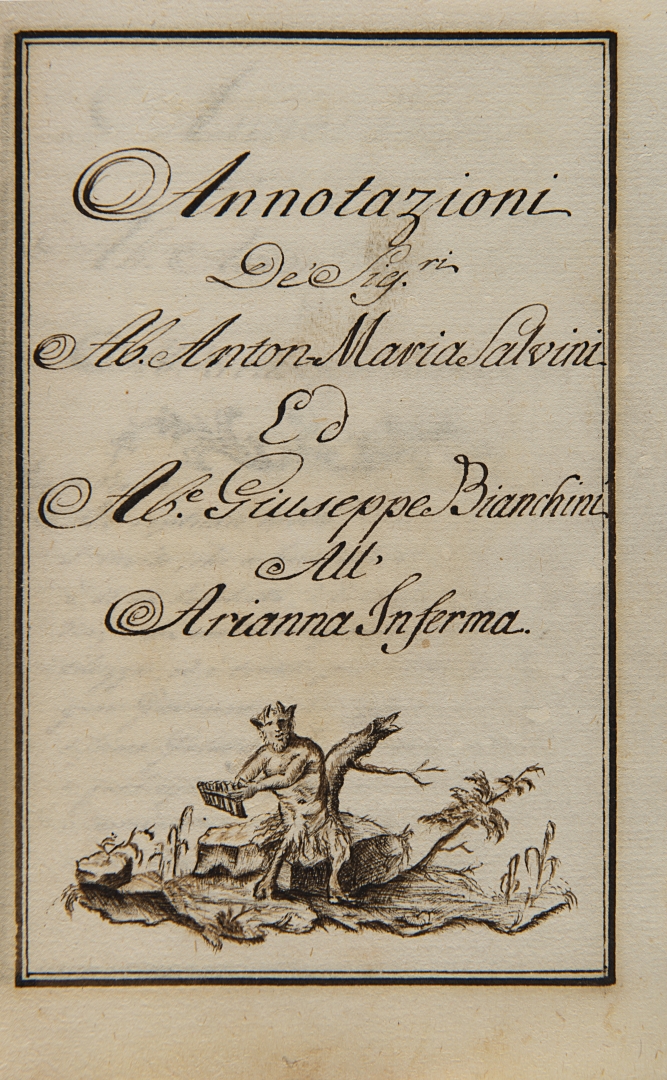 Annotazioni
De' Sig.ri
Ab. Anton Maria Salvini
Ed
Ab.e Giuseppe Bianchini
All'
Arianna Inferma.